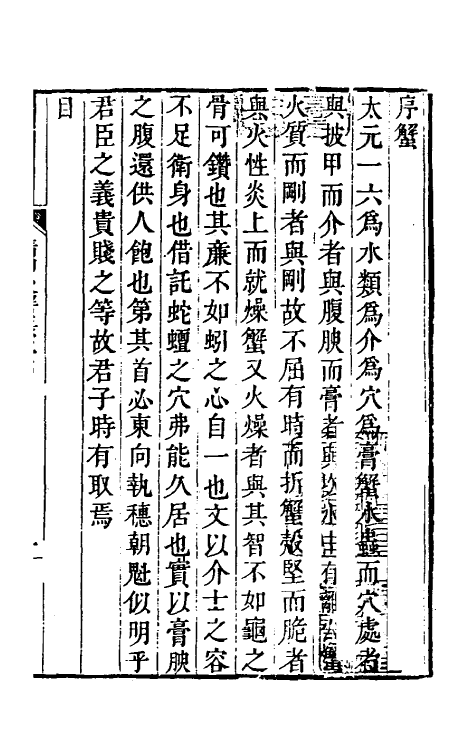 序蟹
太元一六爲水類爲介爲穴爲膏蟹水蟲而穴處者
與披甲而介者與腹腴而膏者與以水生有離公蟹
火質而剛者與剛故不屈有時而折蟹殼堅而脆者
與火性炎上而就燥蟹又火燥者與其智不如龜之
骨可鑽也其廉不如蚓之心自一也文以介士之容
不足衛身也借託蛇蟺之穴弗能久居也實以膏腴
之腹還供人飽也第其首必東向執穗朝魁似明乎
君臣之義貴賤之等故君子時有取焉
目